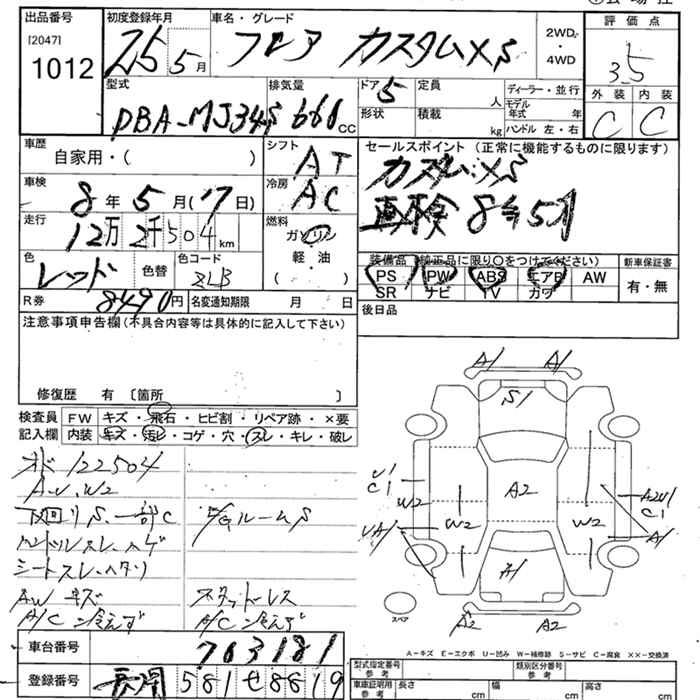 出品番号 初度登録年月 車名・グレード 2WD・4WD 評価点
[2047] 1012 25 5月 フレア カスタムXS 3.5
外装 内装
C C
型式 排気量 ドア 5 定員 人 ディーラー・並行
DBA-MJ34S 660cc 形状 積載 kg モデル年式 年
ハンドル 左・右
車歴 シフト AT セールスポイント (正常に機能するものに限ります)
自家用・( ) カスタムXS
車検 8年5月(17日) 冷房 AC 車検8年5月
走行 12万2千504km 燃料 ガソリン
軽・油
( )
色 レッド 色替 色コード ZLB
装備品 (純正品に限り○をつけてください) 新車保証書
PS PW ABS エアB AW 有・無
SR ナビ TV カワ
R券 8490円 名変通知期限 月 日
後日品
注意事項申告欄(不具合内容等は具体的に記入して下さい)
修復歴 有 〔箇所 〕
検査員 FW キズ・飛石・ヒビ割・リペア跡・×要
記入欄 内装 キズ・汚レ・コゲ・穴・スレ・キレ・破レ
オド 122504
A・U・W2
下回りS、一部C
ハンドルスレ、ハゲ
シートスレ、ヘタリ
AW キズ
A/C 冷えず
E/GルームS
スタッドレス
A/C 冷えず
A1 A1
S1
U1
C1
W2
A2
W2
A2U1
C1
UA1
A1
A1
スペア
A2 A2
A-キズ E-エクボ U-凹み W-補修跡 S-サビ C-腐食 XX-交換済
車台番号 763181
登録番号 長岡 581 せ 8819
型式指定番号 参考 類別区分番号 参考
車体証明 参考 長さ cm 幅 cm 高さ cm